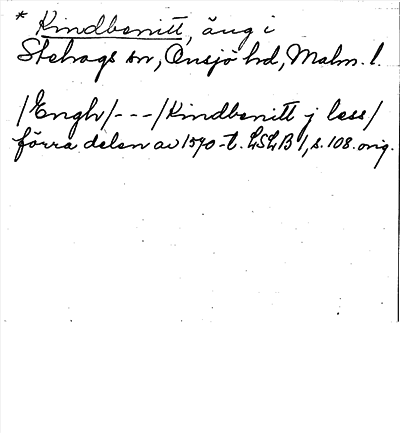 * Kindbenitt, äng i
Stehags sn, Onsjö hd, Malm. l.
/Engh/---/Kindbenitt j less/
förra delen av 1570-t. LSLB 1, s. 108. orig.